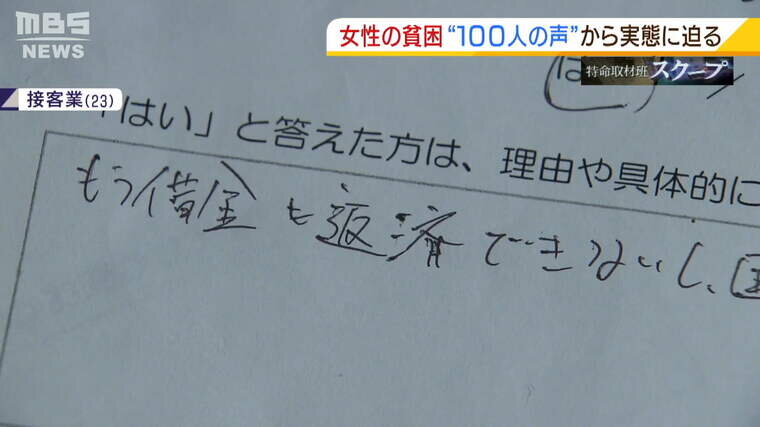 MBS
NEWS
女性の貧困“100人の声”から実態に迫る
特命取材班 スクープ
接客業(23)
はい」と答えた方は、理由や具体的に
もう借金も返済できないし、